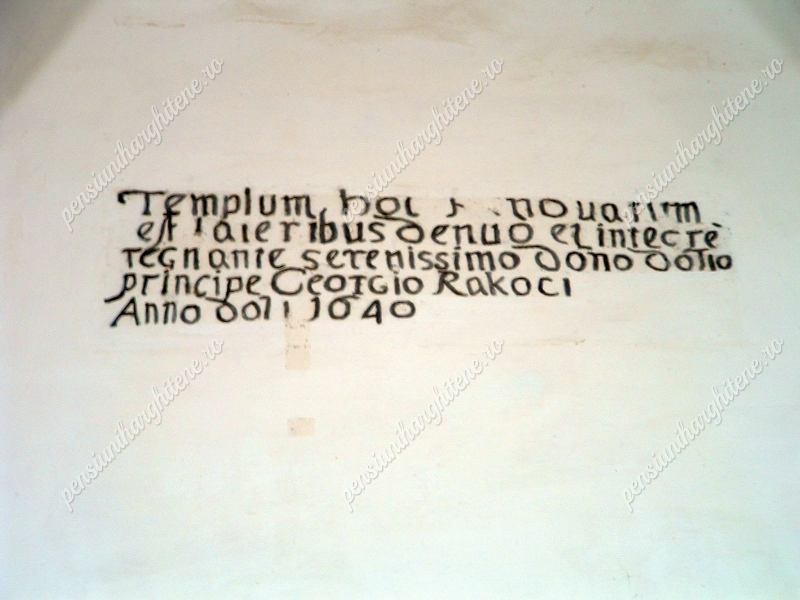 Templum hoc novatum
est lateribus denuo et integrè
regnante serenissimo dono dono
principe Georgio Rakoci
Anno doni 1640
pensiuniharghitene.ro
pensiuniharghitene.ro
pensiuniharghitene.ro
pensiuniharghitene.ro
pensiuniharghitene.ro
pensiuniharghitene.ro